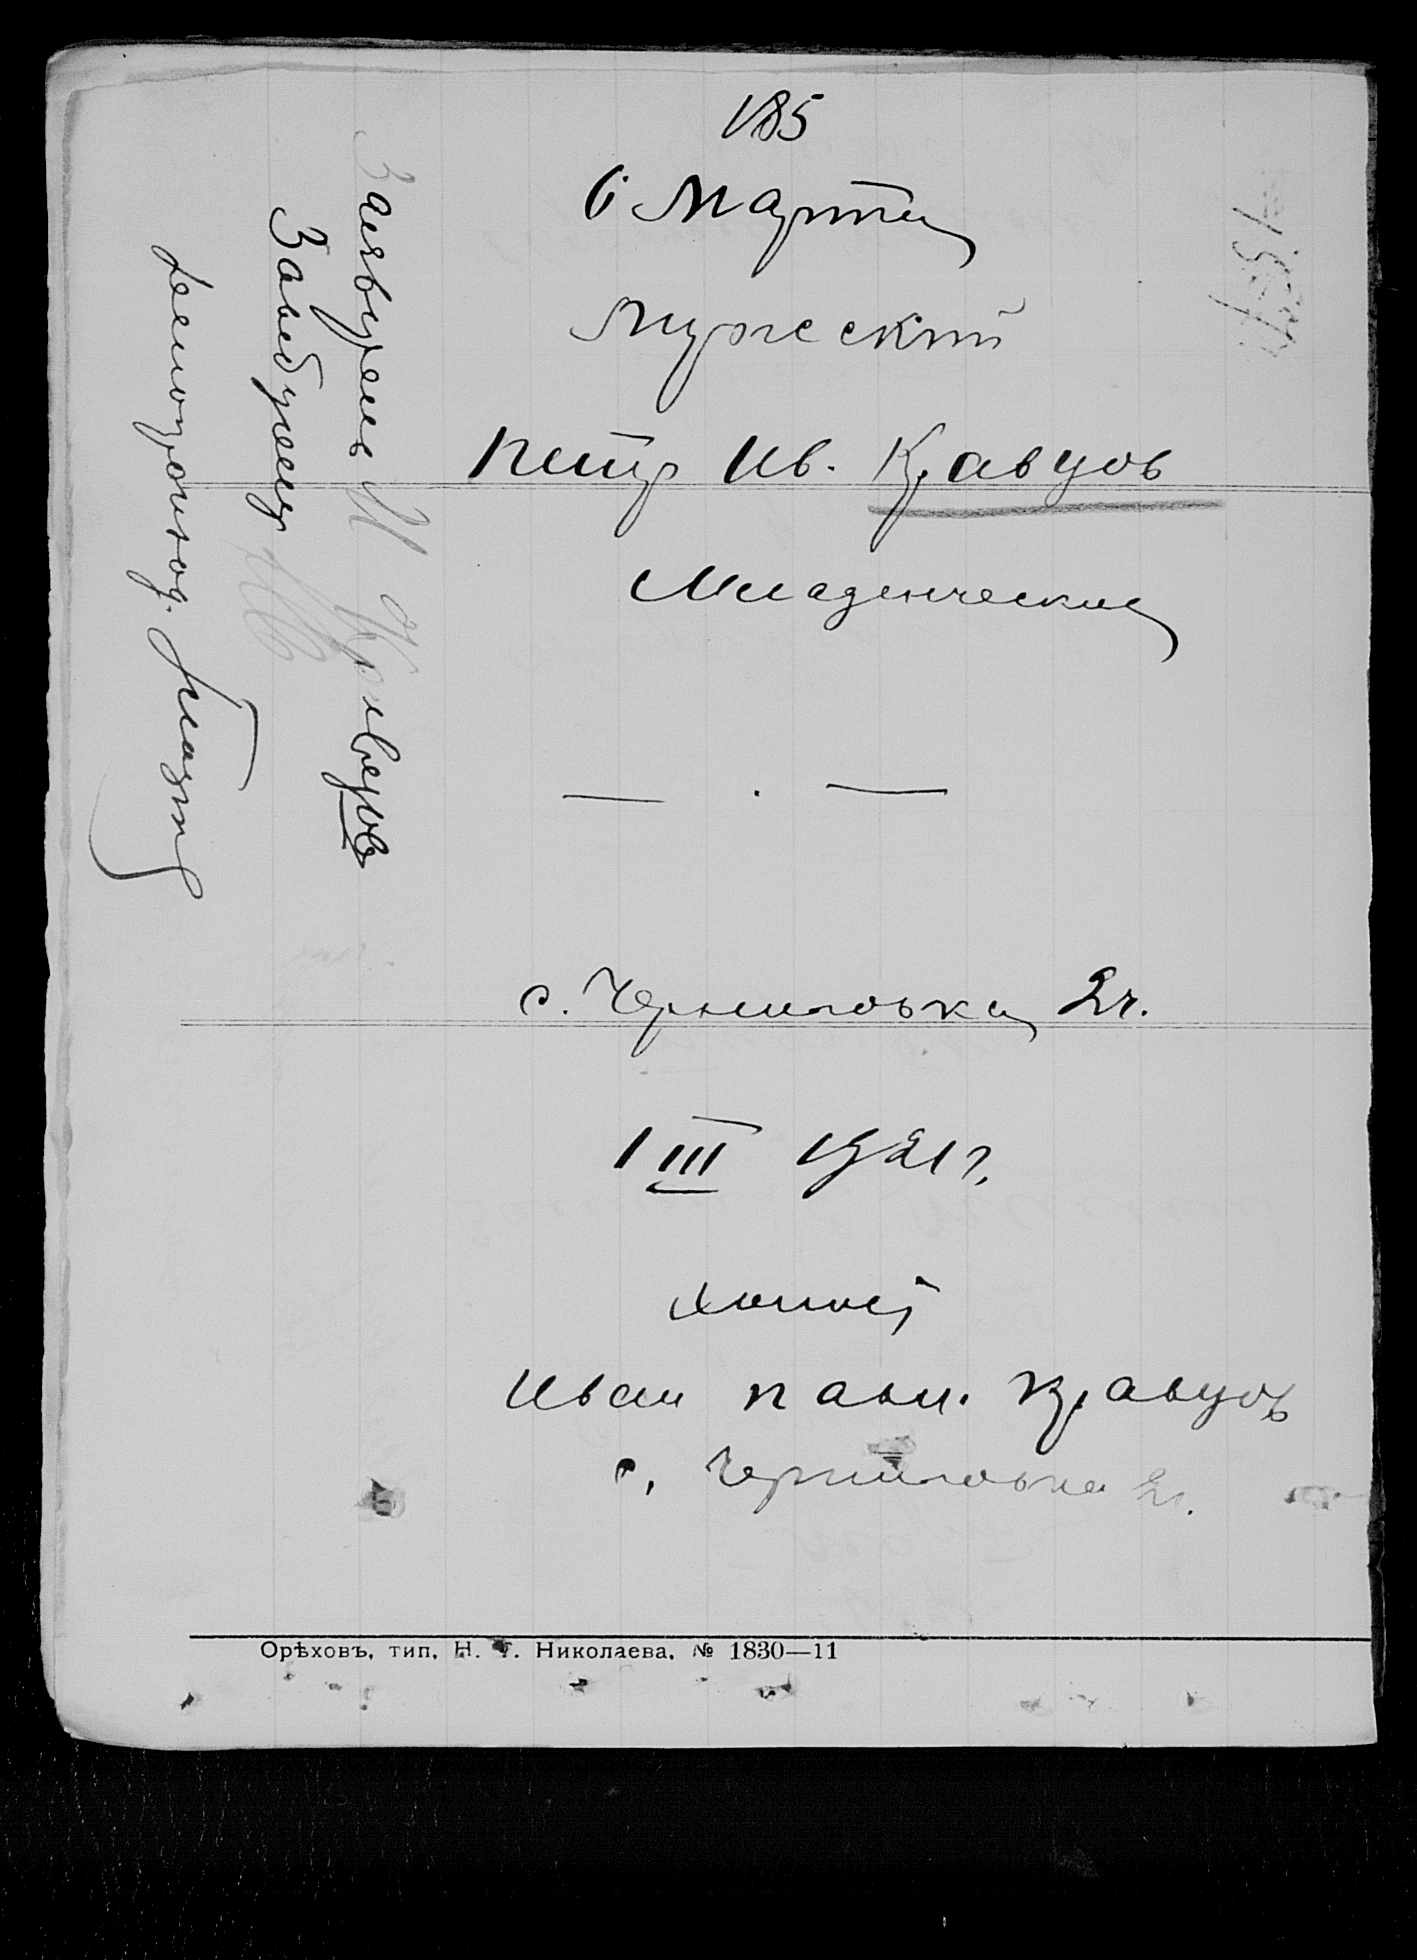 185
6 Марта
Мужеский
Петр Ив. Кравцов
Младенческие
с. Черниговка 2ч.
1 III 1921 г.
холост
Иван Павл. Кравцов
с. Черниговка 2ч.
Заявитель И Кравцов
Заведующ
делопроизвод.
Орѣховъ, тип. Н. Г. Николаева, № 1830—11